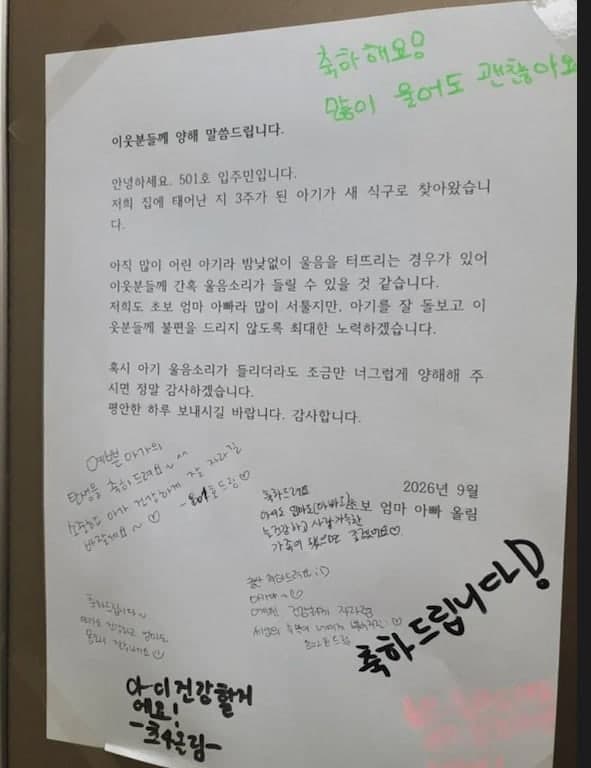 축하해요!
많이 울어도 괜찮아요
이웃분들께 양해 말씀드립니다.
안녕하세요. 501호 입주민입니다.
저희 집에 태어난 지 3주가 된 아기가 새 식구로 찾아왔습니
다.
아직 많이 어린 아기라 밤낮없이 울음을 터뜨리는 경우가 있어
이웃분들께 간혹 울음소리가 들릴 수 있을 것 같습니다.
저희도 초보 엄마 아빠라 많이 서툴지만, 아기를 잘 돌보고 이
웃분들께 불편을 드리지 않도록 최대한 노력하겠습니다.
혹시 아기 울음소리가 들리더라도 조금만 너그럽게 양해해 주
시면 정말 감사하겠습니다.
평안한 하루 보내시길 바랍니다. 감사합니다.
2026년 9월
초보 엄마 아빠 올림
예쁜 아가의
탄생을 축하드려요~^^
아가 건강하게 자라길
바랄게요~♡
축하드려요
가족이 됐으면 좋겠어요♡
건강하게 자라렴
축하드립니다~
축하드립니다!
아이 건강할거
에요!
-초4올림-